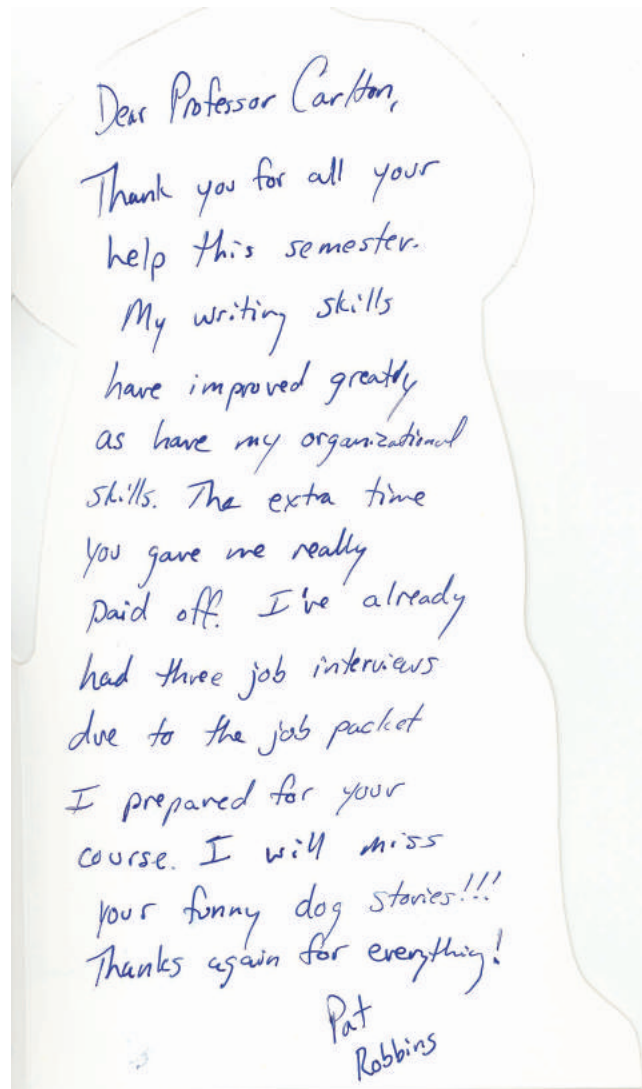 Dear Professor Carlton,
Thank you for all your
help this semester.
My writing skills
have improved greatly
as have my organizational
skills. The extra time
you gave me really
paid off. I've already
had three job interviews
due to the job packet
I prepared for your
course. I will miss
your funny dog stories!!!
Thanks again for everything!
Pat
Robbins